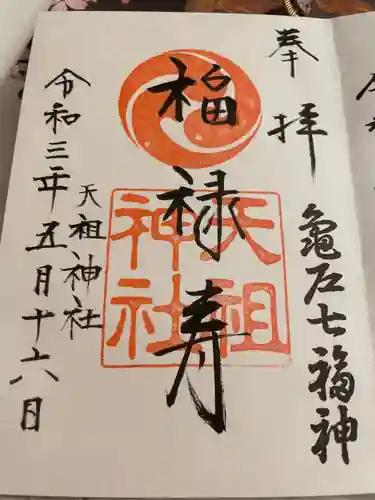 奉拝
亀戸七福神
福禄寿
天祖神社
天祖神社
令和三年五月十六日